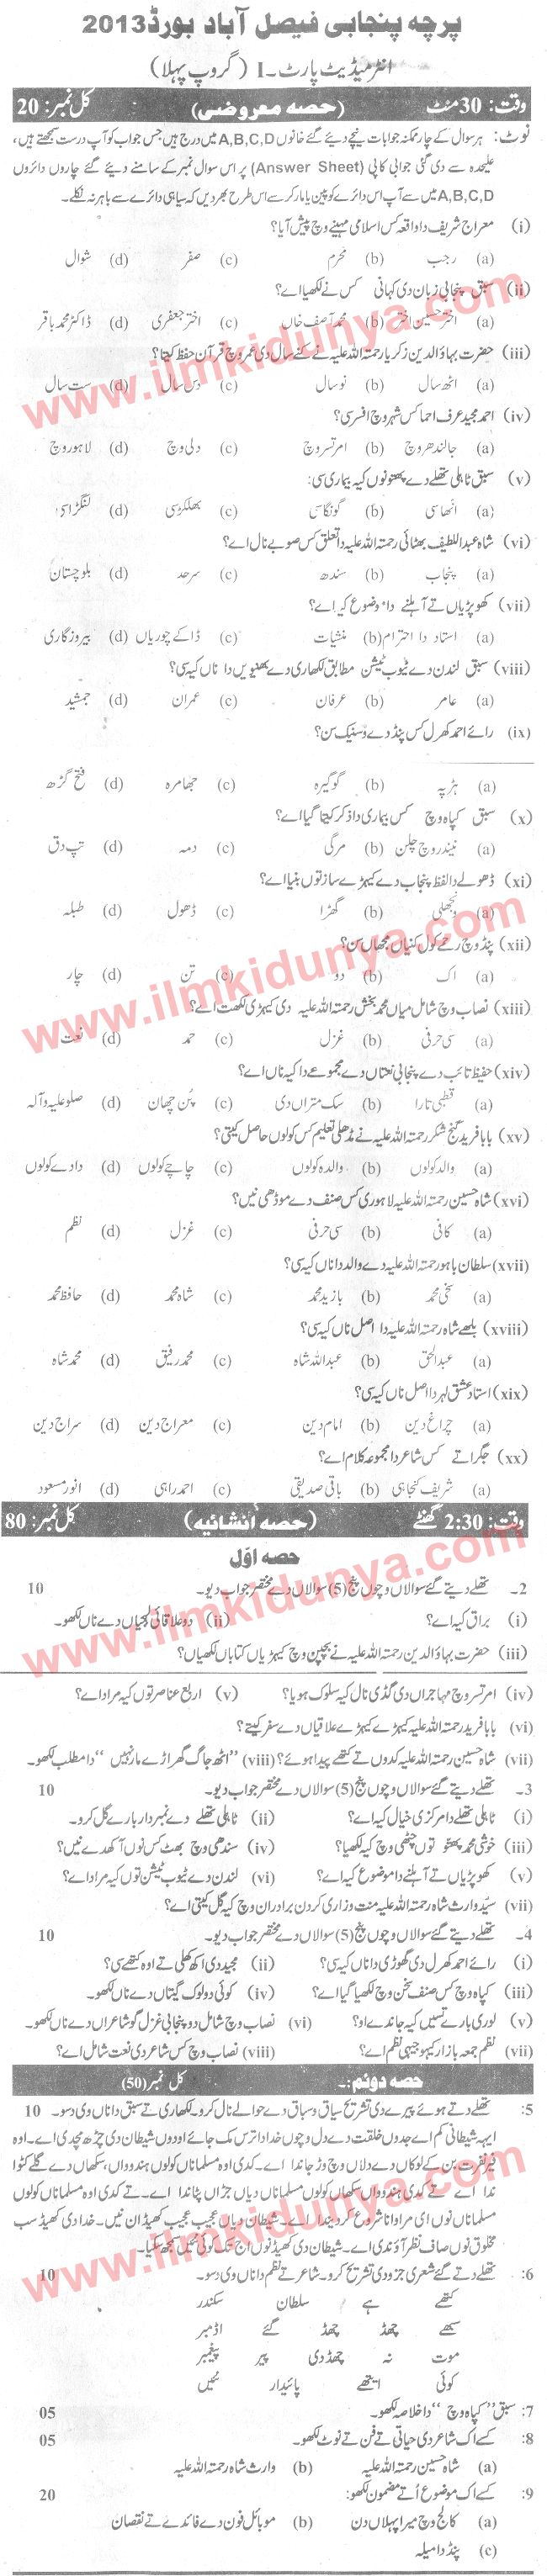 پرچہ پنجابی فیصل آباد بورڈ 2013
انٹرمیڈیٹ پارٹ۔I (گروپ پہلا)
وقت: 30 منٹ (حصہ معروضی) کل نمبر: 20
نوٹ: ہر سوال کے چار ممکنہ جوابات نیچے دیئے گئے خانوں A,B,C,D میں درج ہیں، جس جواب کو آپ درست سمجھتے ہیں،
علیحدہ سے دی گئی جوابی کاپی (Answer Sheet) پر اس سوال نمبر کے سامنے دیئے گئے چاروں دائروں
A,B,C,D میں سے آپ اس دائرے کو پین یا مارکر سے اس طرح بھر دیں کہ سیاہی دائرے سے باہر نہ نکلے۔
(i) معراج شریف دا واقعہ کس اسلامی مہینے وچ پیش آیا؟
(a) رجب (b) محرم (c) صفر (d) شوال
(ii) سبق پنجابی زبان دی کہانی کس نے لکھیا اے؟
(a) اختر حسین اختر (b) محمد آصف خاں (c) اختر جعفری (d) ڈاکٹر محمد باقر
(iii) حضرت بہاؤالدین زکریا رحمتہ اللہ علیہ نے کنے سال دی عمر وچ قرآن حفظ کیتا؟
(a) اٹھ سال (b) نو سال (c) دس سال (d) ست سال
(iv) احمد مجید عرف اما کس شہر وچ افسر سی؟
(a) جالندھر وچ (b) امرتسر وچ (c) دلی وچ (d) لاہور وچ
(v) سبق ٹاہلی تھلے دے پھتو نوں کیہ بیماری سی:
(a) انھا سی (b) گونگا سی (c) بھلکڑ سی (d) لنگڑا سی
(vi) شاہ عبداللطیف بھٹائی رحمتہ اللہ علیہ دا تعلق کس صوبے نال اے؟
(a) پنجاب (b) سندھ (c) سرحد (d) بلوچستان
(vii) کھوپڑیاں تے آہلنے دا موضوع کیہ اے؟
(a) استاد دا احترام (b) منشیات (c) ڈاکے چوریاں (d) بیروزگاری
(viii) سبق لندن دے ٹیوب ٹیشن مطابق لکھاری دے بھنیویں دا ناں کیہ سی؟
(a) عامر (b) عرفان (c) عمران (d) جمشید
(ix) رائے احمد کھرل کس پنڈ دے وسنیک سن؟
(a) ہڑپہ (b) گوگیرہ (c) جھامرہ (d) فتح گڑھ
(x) سبق کپاہ وچ کس بیماری دا ذکر کیتا گیا اے؟
(a) نیندر وچ چلن (b) مرگی (c) دمہ (d) تپ دق
(xi) ڈھولے دا لفظ پنجاب دے کیہڑے ساز توں بنیا اے؟
(a) ونجھلی (b) گھڑا (c) ڈھول (d) طبلہ
(xii) پنڈ وچ رحمے کول کنیاں مجھاں سن؟
(a) اک (b) دو (c) تن (d) چار
(xiii) نصاب وچ شامل میاں محمد بخش رحمتہ اللہ علیہ دی کیہڑی لکھت اے؟
(a) سی حرفی (b) غزل (c) حمد (d) نعت
(xiv) حفیظ تائب دے پنجابی نعتاں دے مجموعے دا کیہ ناں اے؟
(a) قطبی تارا (b) سک متراں دی (c) پُن چھان (d) صلو علیہ و آلہ
(xv) بابا فرید گنج شکر رحمتہ اللہ علیہ نے مڈھلی تعلیم کس کولوں حاصل کیتی؟
(a) والد کولوں (b) والدہ کولوں (c) چاچے کولوں (d) دادے کولوں
(xvi) شاہ حسین رحمتہ اللہ علیہ لاہوری کس صنف دے موڈھی نیں؟
(a) کافی (b) سی حرفی (c) غزل (d) نظم
(xvii) سلطان باہو رحمتہ اللہ علیہ دے والد دا ناں کیہ سی؟
(a) سخی محمد (b) بازید محمد (c) شاہ محمد (d) حافظ محمد
(xviii) بلھے شاہ رحمتہ اللہ علیہ دا اصل ناں کیہ سی؟
(a) عبدالحق (b) عبداللہ شاہ (c) محمد رفیق (d) محمد شاہ
(xix) استاد عشق لہر دا اصل ناں کیہ سی؟
(a) چراغ دین (b) امام دین (c) معراج دین (d) سراج دین
(xx) جگراتے کس شاعر دا مجموعہ کلام اے؟
(a) شریف کنجاہی (b) باقی صدیقی (c) احمد راہی (d) انور مسعود
وقت: 2:30 گھنٹے (حصہ انشائیہ) کل نمبر: 80
حصہ اوّل
2۔ تھلے دیتے گئے سوالاں وچوں پنج (5) سوالاں دے مختصر جواب دیو۔ 10
(i) براق کیہ اے؟ (ii) دو علاقائی لہجیاں دے ناں لکھو۔
(iii) حضرت بہاؤالدین رحمتہ اللہ علیہ نے بچپن وچ کیہڑیاں کتاباں لکھیاں؟
(iv) امرتسر وچ مہاجراں دی گڈی نال کیہ سلوک ہویا؟ (v) اربع عناصر توں کیہ مراد اے؟
(vi) بابا فرید رحمتہ اللہ علیہ کیہڑے کیہڑے علاقیاں دے سفر کیتے؟
(vii) شاہ حسین رحمتہ اللہ علیہ کدوں تے کتھے پیدا ہوئے؟ (viii) "اٹھ جاگ گھراڑے مار نہیں" دا مطلب لکھو۔
3۔ تھلے دیتے گئے سوالاں وچوں پنج (5) سوالاں دے مختصر جواب دیو۔ 10
(i) ٹاہلی تھلے دا مرکزی خیال کیہ اے؟ (ii) ٹاہلی تھلے دے نمبردار بارے گل کرو۔
(iii) خوشی محمد پھتو توں چٹھی وچ کیہ لکھیا؟ (iv) سندھی وچ بھٹ کس نوں آکھدے نیں؟
(v) کھوپڑیاں تے آہلنے دا موضوع کیہ اے؟ (vi) لندن دے ٹیوب ٹیشن توں کیہ مراد اے؟
(vii) سیّد وارث شاہ رحمتہ اللہ علیہ منت وزاری کردن برادران وچ کیہ گل کیتی اے؟
4۔ تھلے دیتے گئے سوالاں وچوں پنج (5) سوالاں دے مختصر جواب دیو۔ 10
(i) رائے احمد کھرل دی گھوڑی دا ناں کیہ سی؟ (ii) مجید دی اکھ کھلی تے اوہ کتھے سی؟
(iii) کپاہ وچ کس صنف سخن وچ لکھیا گیا اے؟ (iv) کوئی دو لوک گیتاں دے ناں لکھو۔
(v) لوری بارے تسیں کیہ جاندے او؟ (vi) نصاب وچ شامل دو پنجابی غزل گو شاعراں دے ناں لکھو۔
(vii) نظم جمعہ بازار کیہو جیہی نظم اے؟ (viii) نصاب وچ کس شاعر دی نعت شامل اے؟
حصہ دوئم:۔ کل نمبر (50)
5: تھلے دتے ہوئے پیرے دی تشریح سیاق و سباق دے حوالے نال کرو۔ لکھاری تے سبق دا ناں وی دسو۔ 10
ایہہ شیطانی کم اے جدوں خلقت دے دل وچوں خدا دا ترس مک جائے اودوں شیطان دی چڑھ مچدی اے۔ اوہ
نفرت بن کے لوکاں دے دلاں وچ وڑ جاندا اے۔ کدی اوہ مسلماناں کولوں ہندوواں، سکھاں دے گلے کٹوا
ندا اے تے کدی ہندوواں سکھاں کولوں مسلماناں دیاں جڑاں پٹاندا اے۔ تے کدی اوہ مسلماناں کولوں
مسلماناں نوں ای مروانا شروع کر دیندا اے۔ شیطان دیاں عجیب عجیب کھیڈاں نیں۔ خدا دی کھیڈ سب
مخلوق نوں صاف نظر آؤندی اے۔ شیطان دی کھیڈ نوں اج تک کوئی نئیں سمجھ سکیا۔
6: تھلے دتے گئے شعری جزو دی تشریح کرو۔ شاعر تے نظم دا ناں وی دسو۔ 10
کتھے ہے سلطان سکندر
سبھے چھڈ چھڈ گئے اڈمبر
موت نہ چھڈدی پیر پیغمبر
کوئی ایتھے پائیدار نئیں
7: سبق "کپاہ وچ" دا خلاصہ لکھو۔ 05
8: کسے اک شاعر دی حیاتی تے فن تے نوٹ لکھو۔ 05
(a) شاہ حسین رحمتہ اللہ علیہ (b) وارث شاہ رحمتہ اللہ علیہ
9: کسے اک موضوع اُتے مضمون لکھو: 20
(a) کالج وچ میرا پہلاں دن (b) موبائل فون دے فائدے تے نقصان
(c) پنڈ دا میلہ
www.ilmkidunya.com
www.ilmkidunya.com
www.ilmkidunya.com
www.ilmkidunya.com